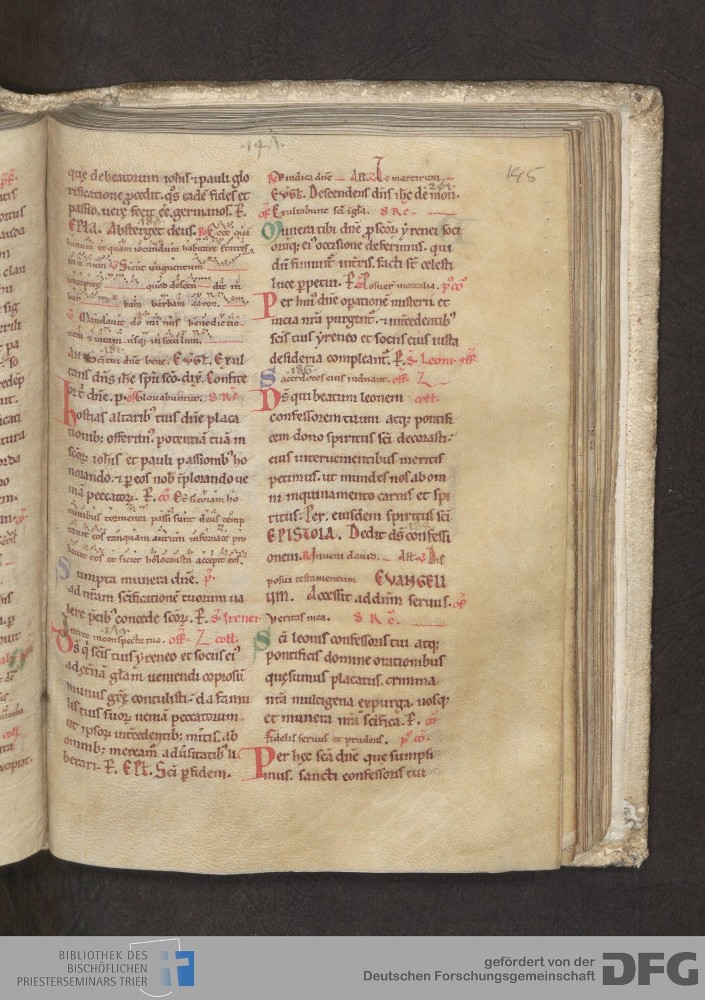 145
que de beatorum iohis ⁊ pauli glo
rificatione p̄cedit. q̄s eadē fides et
passio. uere fecit eē. germanos. P.
EPL̄A. Absterget deus. Ecce quā
bonum et quam iocundum habitare fratres
in unum Sicut unguentum
quod descen dit in
bar bam barbam aaron.
Mandauit do mi nus benedictio
nem ⁊ uitam. usq; in seculum.
Sc̄i tui dn̄e bene. EVGL̄. Exul
tans dn̄s ih̄c sp̄u sc̄o. Confite
dn̄e. Gloriabuntur. S R̄E.
hostias altarib' tuis dn̄e placa
tionib; offerim'. potentiā tuā in
sc̄or iohis et pauli passionib' ho
norando. ⁊ p eos nob īplorando ue
niā peccator. P. cō Et si coram ho
minibus tormenta passi sunt deus temp
tauit eos tanquam aurum in fornace pro
bauit eos et sicut holocausta accepit eos.
Sumpta munera dn̄e.
ad nr̄am sc̄ificationē tuorum ua
lere p̄cib' concede sc̄or. P. S. yrenei
Intret in conspectu tuo. off. coll.
Ds̄ q̄ sc̄is tuis yreneo et sociis ei'
ad et̄nā gl̄am ueniendi copiosū
munus grē contulisti. da famu
lis tuis suor ueniā peccatorum
ut ip̄sor int̄cedentib; m̄itis. ab
omnib; mereant̄ aduersitatib' li
berari. P. EPL̄. Sc̄i p fidem.
Vindica dn̄e All. Te martirum
EVGL̄. Descendens dn̄s ih̄c de mon.
Exultabunt sc̄i in gl̄a. S R E.
Munera tibi dn̄e p sc̄or yrenei soci
orūq; ei' occisione deferimus. qui
dū finiunt̄ in t̄ris. facti st̄ celesti
luce ppetui. P. Posuer mortalia. p̄ cō
Per hui' dn̄e operationē misterii. et
uicia nr̄a purgent̄. ⁊ int̄cedentib'
sc̄is tuis yreneo et sociis eius iusta
desideria compleant̄. P. S. Leonis
Sacerdotes eius induant. off.
Ds̄ qui beatum leonem coll.
confessorem tuum atq; pontifi
cem dono spiritus sc̄i decorasti.
eius interuenientibus meritis
petimus. ut mundes nos ab om
ni inquinamento carnis et spi
ritus. Per. eiusdem spiritus sc̄i
EPISTOLA. Dedit ds̄ confessi
onem. Inueni dauid. All. Dis
posui testamentum EVANGELI
UM. Accessit ad dn̄m seruus. of
Veritas mea. S R E.
Sc̄i leonis confessoris tui atq;
pontificis domine orationibus
quesumus placatus. crimina
nr̄a multigena expurga. nosq;
et munera nr̄a sc̄ifica. P. cō
Fidelis seruus et prudens. p̄ cō.
Per hec sc̄a dn̄e que sumpsi
mus. sancti confessoris tui
BIBLIOTHEK DES
BISCHÖFLICHEN
PRIESTERSEMINARS TRIER
gefördert von der
Deutschen Forschungsgemeinschaft
DFG